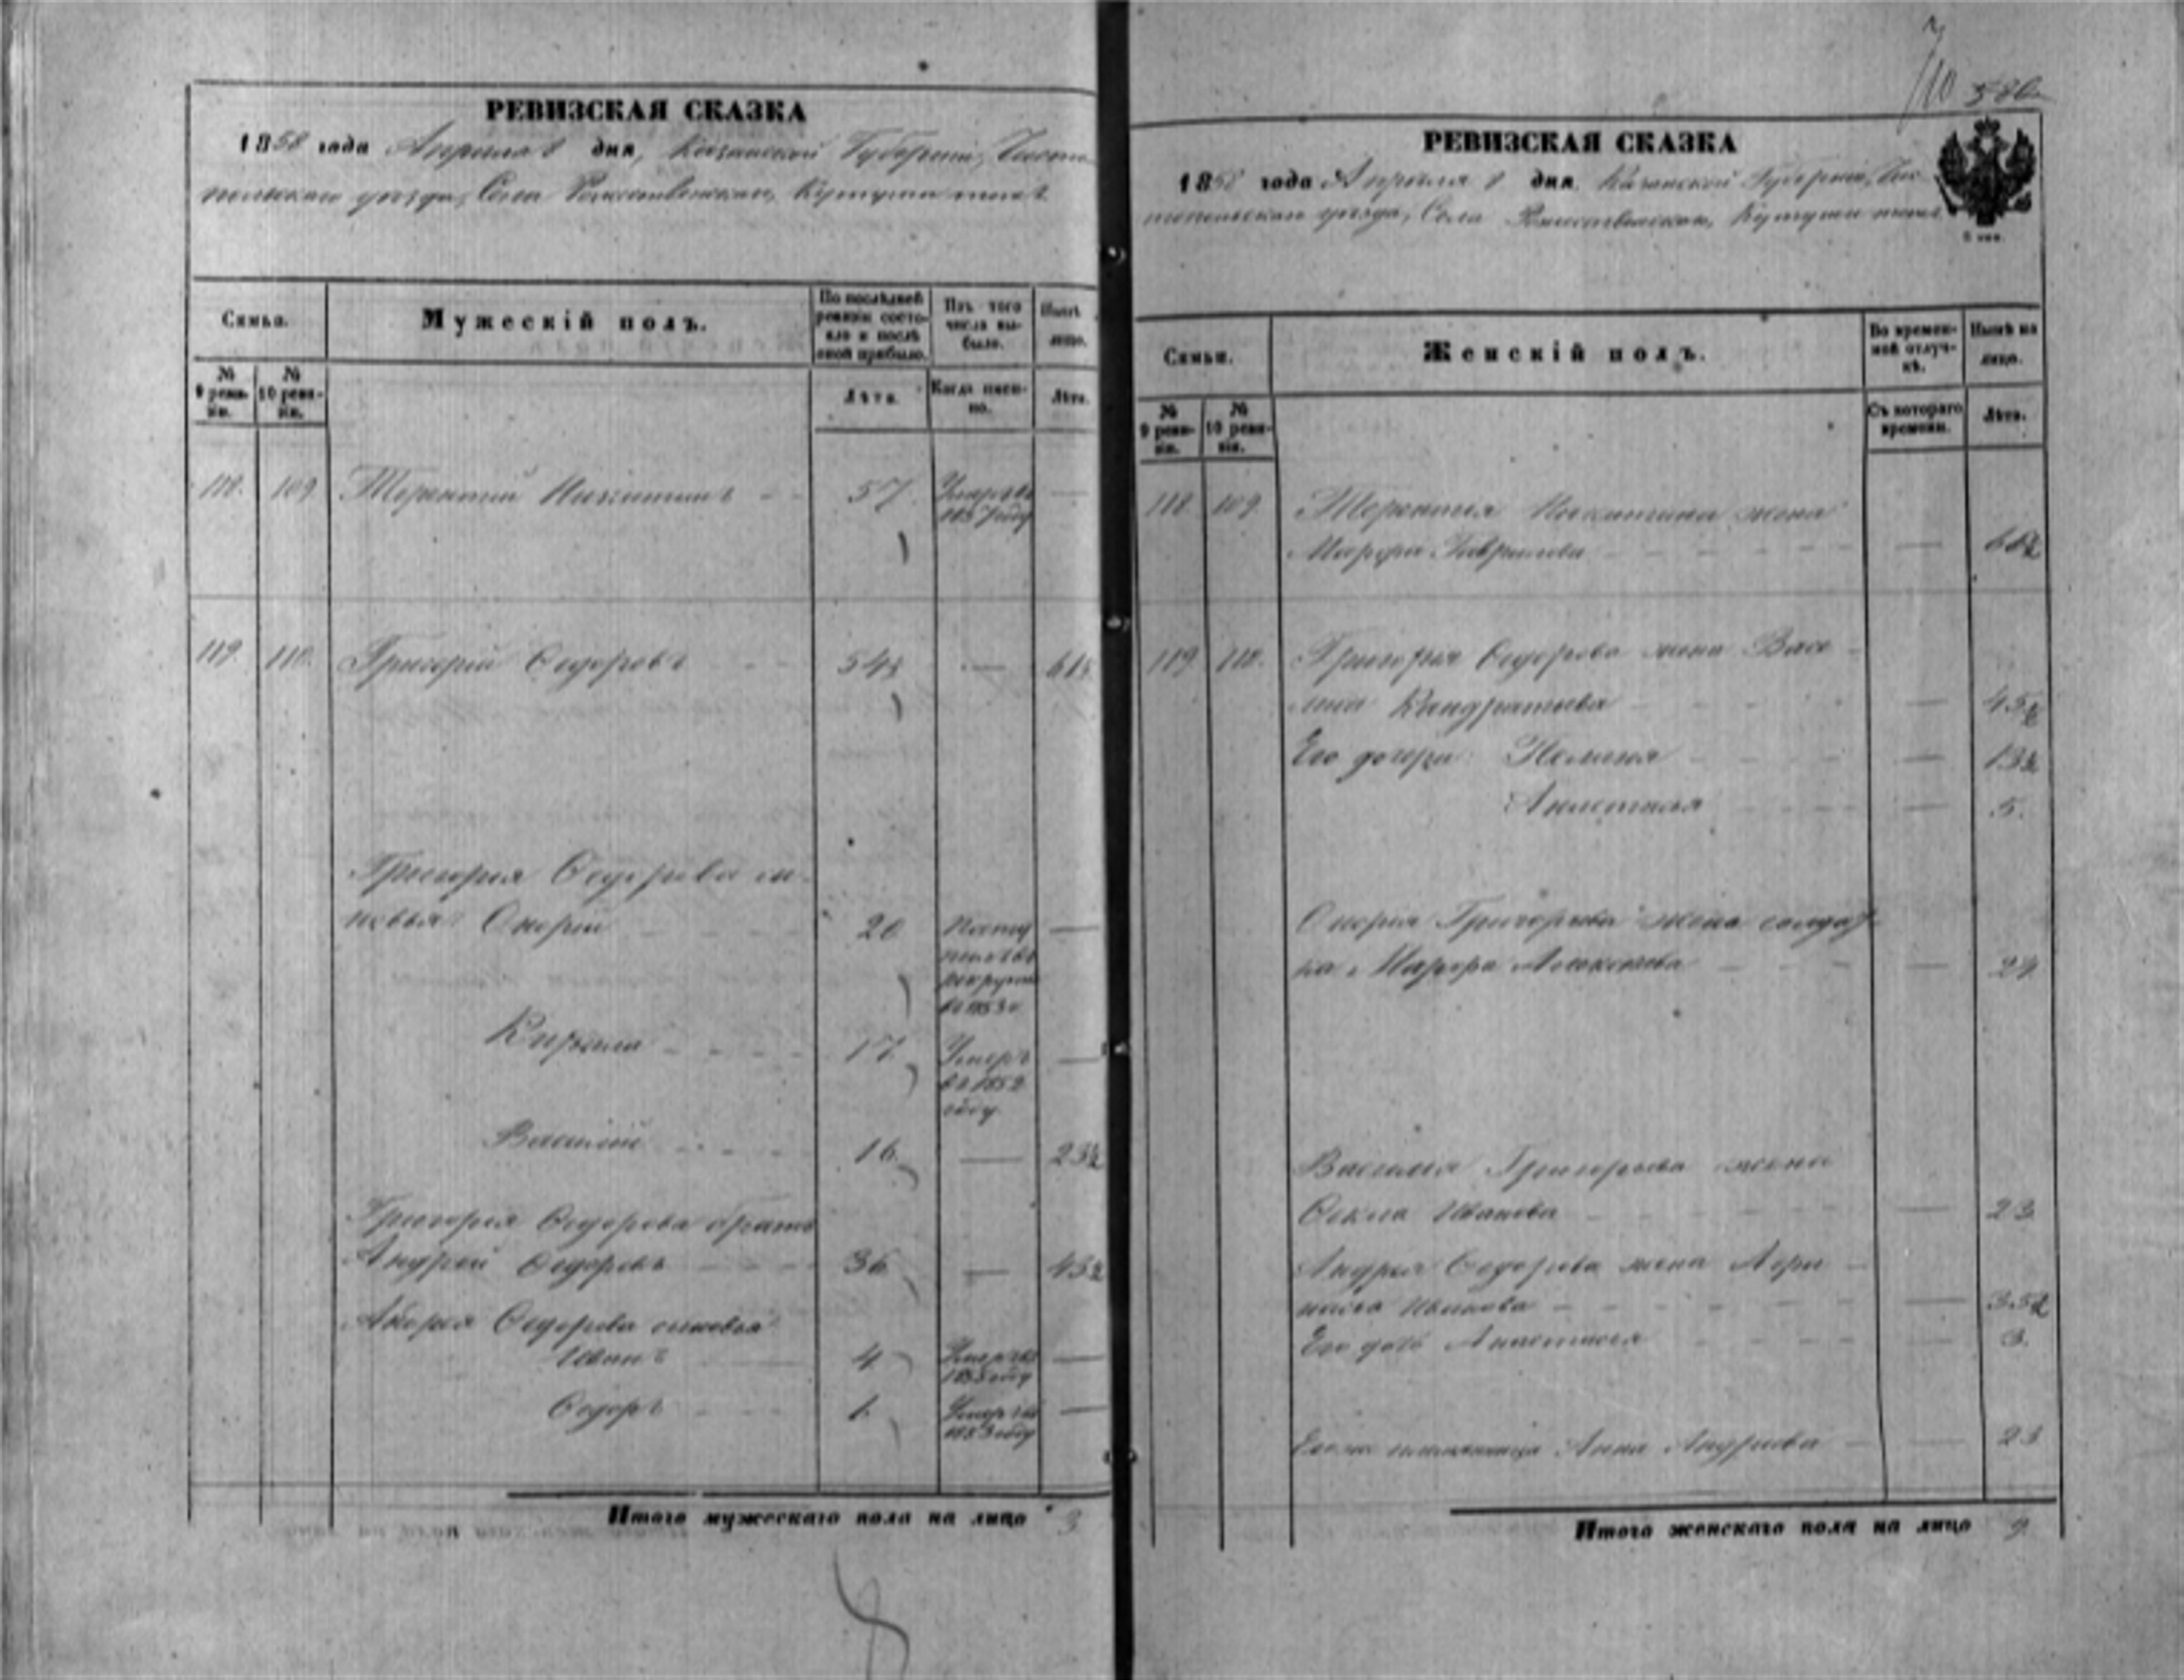 РЕВИЗСКАЯ СКАЗКА
1858 года Апреля 8 дня, Казанской Губернии, Чисто-
польского уезда, Села Рождественскаго, Кутуши тожъ
Семьи.
Мужескій полъ.
По послѣдней ревизіи состояло и послѣ оной прибыло.
Изъ того числа выбыло.
Нынѣ на лицо.
№ 9 ревизіи.
№ 10 ревизіи.
Лѣта.
Когда именно.
Лѣта.
118. 109. Терентий Никитинъ 57 Умеръ въ —
1857 году
119. 110. Григорий Федоровъ 54½ — 61½
Григория Федорова сы-
новья: 20 Посту —
пилъ въ
рекруты
въ 1853 г
Кирила 17 Умеръ —
въ 1852
году.
Василий 16. — 23½
Григория Федорова братъ
Андрей Федоровъ 36 — 43½
Федорова сыновья
Иванъ 4 Умеръ въ —
году
Федоръ 1. Умеръ въ —
1853 году
Итого мужескаго пола на лицо 3
710
РЕВИЗСКАЯ СКАЗКА
1858 года Апреля 8 дня Казанской Губернии, Чис-
топольскаго уезда, Села Рождественскаго, Кутуши тожъ
Семьи.
Женскій полъ.
Во временной отлучкѣ.
Нынѣ на лицо.
№ 9 ревизіи.
№ 10 ревизіи.
Съ котораго времени.
Лѣта.
118 109. Терентия Никитина жена
Марфа Гаврилова —
119 110. Григорья Федорова жена Васе-
лиса Кандратьева — 45½
Его дочери: Пелагия — 13½
Анастасья — 5.
Григорьева жена солдат-
ка Марфа Алексеева — 24
Василия Григорьева жена
Фекла Иванова — 23
Андрея Федорова жена Афи-
насья Иванова — 35½
Его дочь Анастасия — 3.
Анна Андреева — 23
Итого женскаго пола на лицо 9